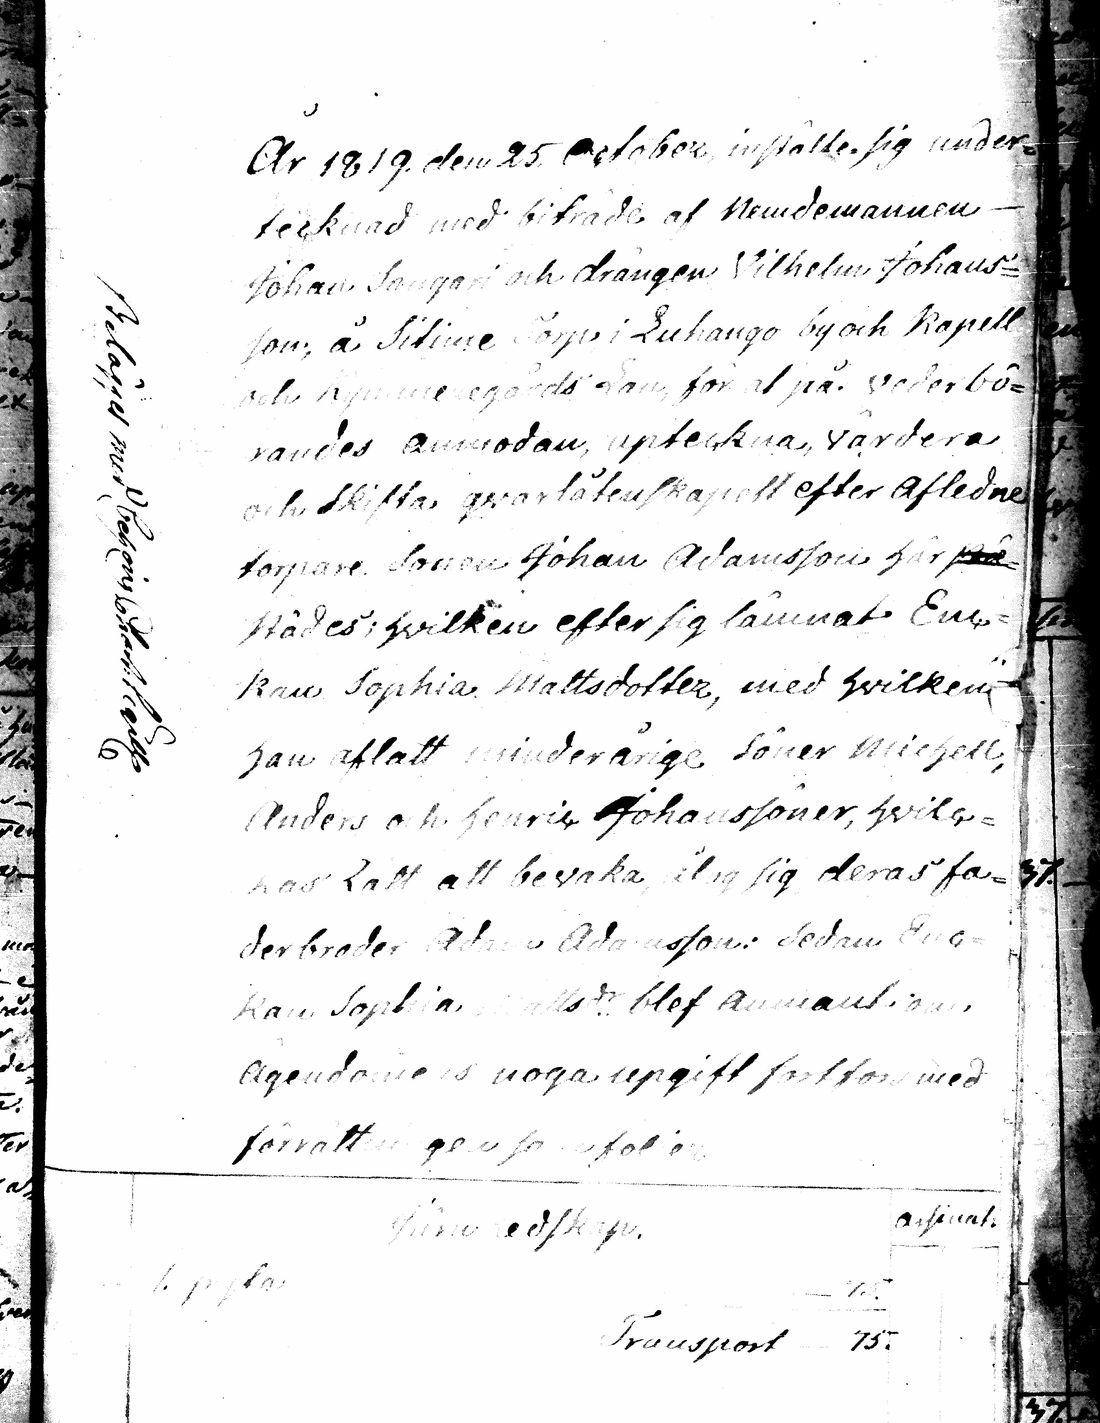 År 1819. den 25. October, instälte sig under=
tecknad med biträde af Nemdemannen —
Johan Sangari och drängen Vilhelm Johans=
son, å Sitime Torp i Luhango by och Kapell
och Kymmenegårds Län, för at på vederbö=
randes anmodan, uptekna, värdera
och skifta qvarlåtenskapett efter Afledne
torpare Sonen Johan Adamsson här
städes; hvilken efter sig lämnat Enc=
kan Sophia Mattsdotter, med hvilken
han aflatt minderårige Söner Michell,
Anders och Henric Johanssöner, hvilc=
kas Rätt att bevaka, åtog sig deras fa=
derbroder Adam Adamsson: Sedan Enc=
kan Sophia Mattsdr blef anmant om
Ägendomens noga upgift forttors med
förrättningen som följer
Järn redskap.
assinat.
1. pyta
75.
Transport 75.
Belägges med Charta
37.
37.